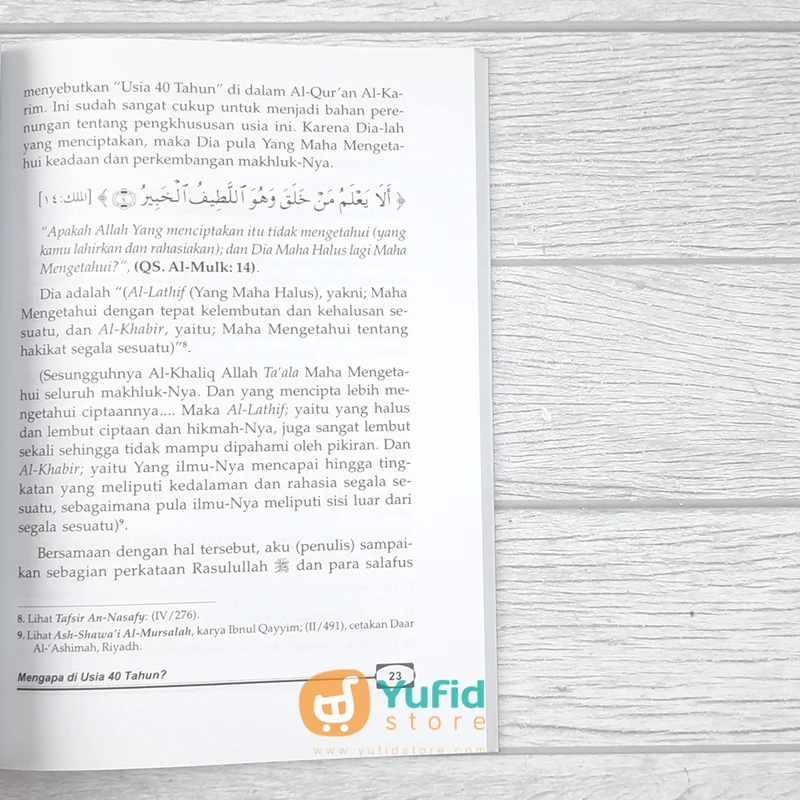 menyebutkan "Usia 40 Tahun" di dalam Al-Qur'an Al-Ka-
rim. Ini sudah sangat cukup untuk menjadi bahan pere-
nungan tentang pengkhususan usia ini. Karena Dia-lah
yang menciptakan, maka Dia pula Yang Maha Mengeta-
hui keadaan dan perkembangan makhluk-Nya.
﴿ أَلَا يَعْلَمُ مَنْ خَلَقَ وَهُوَ ٱللَّطِيفُ ٱلْخَبِيرُ ۝١٤ ﴾ [الملك: ١٤]
"Apakah Allah Yang menciptakan itu tidak mengetahui (yang
kamu lahirkan dan rahasiakan); dan Dia Maha Halus lagi Maha
Mengetahui?", (QS. Al-Mulk: 14).
Dia adalah "(Al-Lathif (Yang Maha Halus), yakni; Maha
Mengetahui dengan tepat kelembutan dan kehalusan se-
suatu, dan Al-Khabir, yaitu; Maha Mengetahui tentang
hakikat segala sesuatu)"8.
(Sesungguhnya Al-Khaliq Allah Ta'ala Maha Mengeta-
hui seluruh makhluk-Nya. Dan yang mencipta lebih me-
ngetahui ciptaannya.... Maka Al-Lathif; yaitu yang halus
dan lembut ciptaan dan hikmah-Nya, juga sangat lembut
sekali sehingga tidak mampu dipahami oleh pikiran. Dan
Al-Khabir; yaitu Yang ilmu-Nya mencapai hingga ting-
katan yang meliputi kedalaman dan rahasia segala se-
suatu, sebagaimana pula ilmu-Nya meliputi sisi luar dari
segala sesuatu)9.
Bersamaan dengan hal tersebut, aku (penulis) sampai-
kan sebagian perkataan Rasulullah ﷺ dan para salafus
8. Lihat Tafsir An-Nasafy: (IV/276).
9. Lihat Ash-Shawa'i Al-Mursalah, karya Ibnul Qayyim; (II/491), cetakan Daar
Al-'Ashimah, Riyadh.
Mengapa di Usia 40 Tahun? 23
Yufid
store
www.yufidstore.com